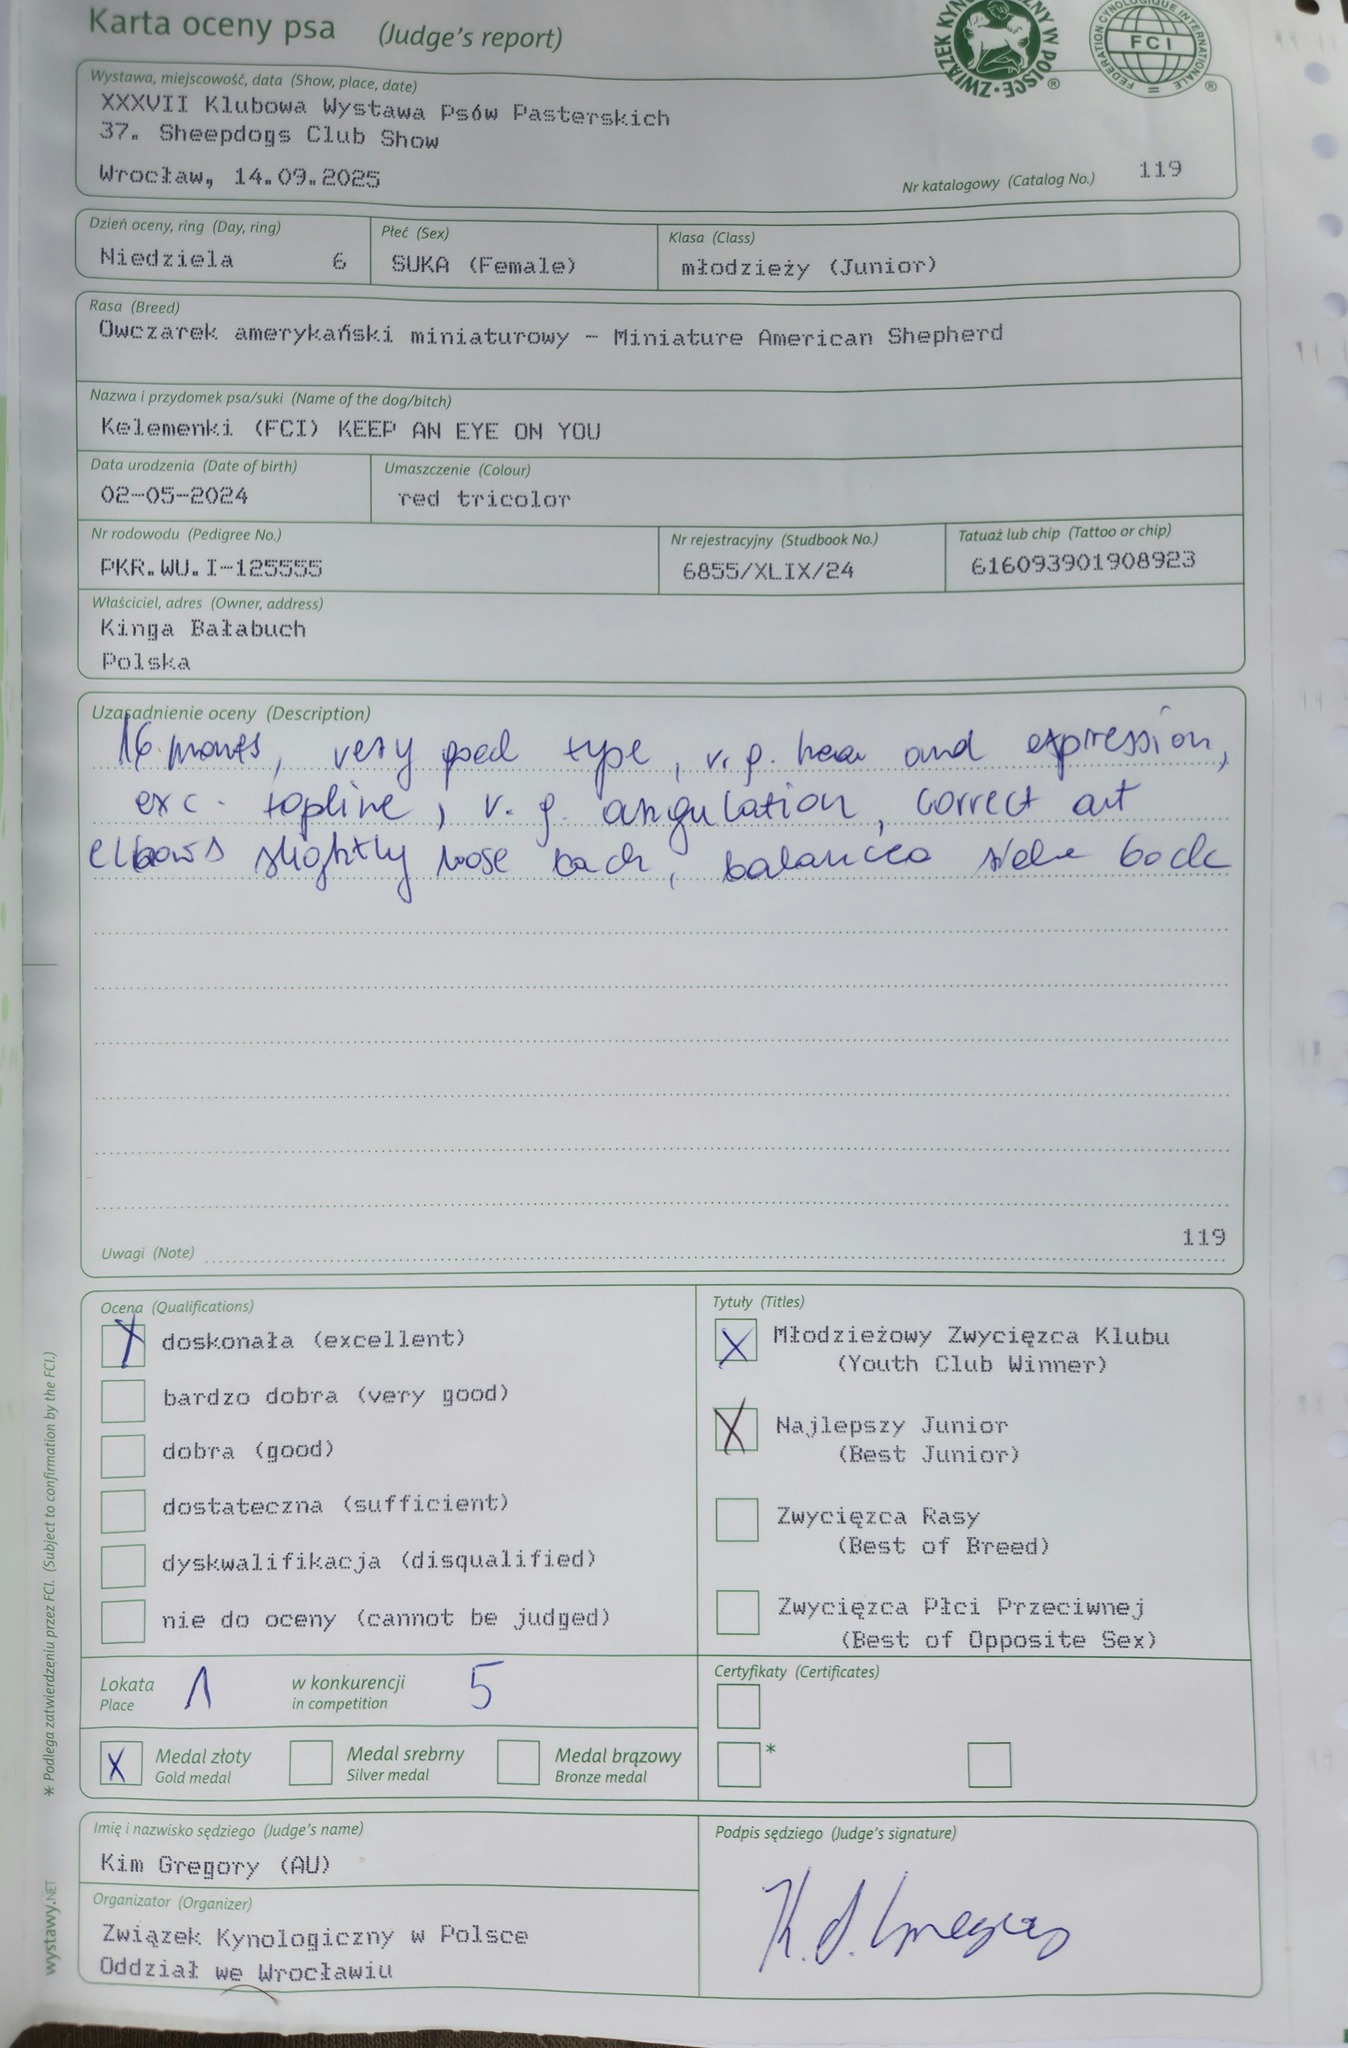 Karta oceny psa (Judge's report)
ZWIĄZEK KYNOLOGICZNY W POLSCE ®
FEDERATION CYNOLOGIQUE INTERNATIONALE FCI ®
Wystawa, miejscowość, data (Show, place, date)
XXXVII Klubowa Wystawa Psów Pasterskich
37. Sheepdogs Club Show
Wrocław, 14.09.2025
Nr katalogowy (Catalog No.) 119
Dzień oceny, ring (Day, ring) Płeć (Sex) Klasa (Class)
Niedziela 6 SUKA (Female) młodzieży (Junior)
Rasa (Breed)
Owczarek amerykański miniaturowy - Miniature American Shepherd
Nazwa i przydomek psa/suki (Name of the dog/bitch)
Kelemenki (FCI) KEEP AN EYE ON YOU
Data urodzenia (Date of birth) Umaszczenie (Colour)
02-05-2024 red tricolor
Nr rodowodu (Pedigree No.) Nr rejestracyjny (Studbook No.) Tatuaż lub chip (Tattoo or chip)
PKR.WU.I-125555 6855/XLIX/24 616093901908923
Właściciel, adres (Owner, address)
Kinga Bałabuch
Polska
Uzasadnienie oceny (Description)
16 , very good type, v. g. and expression,
exc. topline, v. g. angulation, correct
elbows slightly
119
Uwagi (Note)
Ocena (Qualifications) Tytuły (Titles)
X doskonała (excellent) X Młodzieżowy Zwycięzca Klubu
(Youth Club Winner)
bardzo dobra (very good)
X Najlepszy Junior
dobra (good) (Best Junior)
dostateczna (sufficient) Zwycięzca Rasy
(Best of Breed)
dyskwalifikacja (disqualified)
Zwycięzca Płci Przeciwnej
nie do oceny (cannot be judged) (Best of Opposite Sex)
Lokata 1 w konkurencji 5 Certyfikaty (Certificates)
Place in competition
*
X Medal złoty Medal srebrny Medal brązowy
Gold medal Silver medal Bronze medal
Imię i nazwisko sędziego (Judge's name) Podpis sędziego (Judge's signature)
Kim Gregory (AU)
K. Gregory
Organizator (Organizer)
Związek Kynologiczny w Polsce
Oddział we Wrocławiu
* Podlega zatwierdzeniu przez FCI. (Subject to confirmation by the FCI.)
wystawy.NET